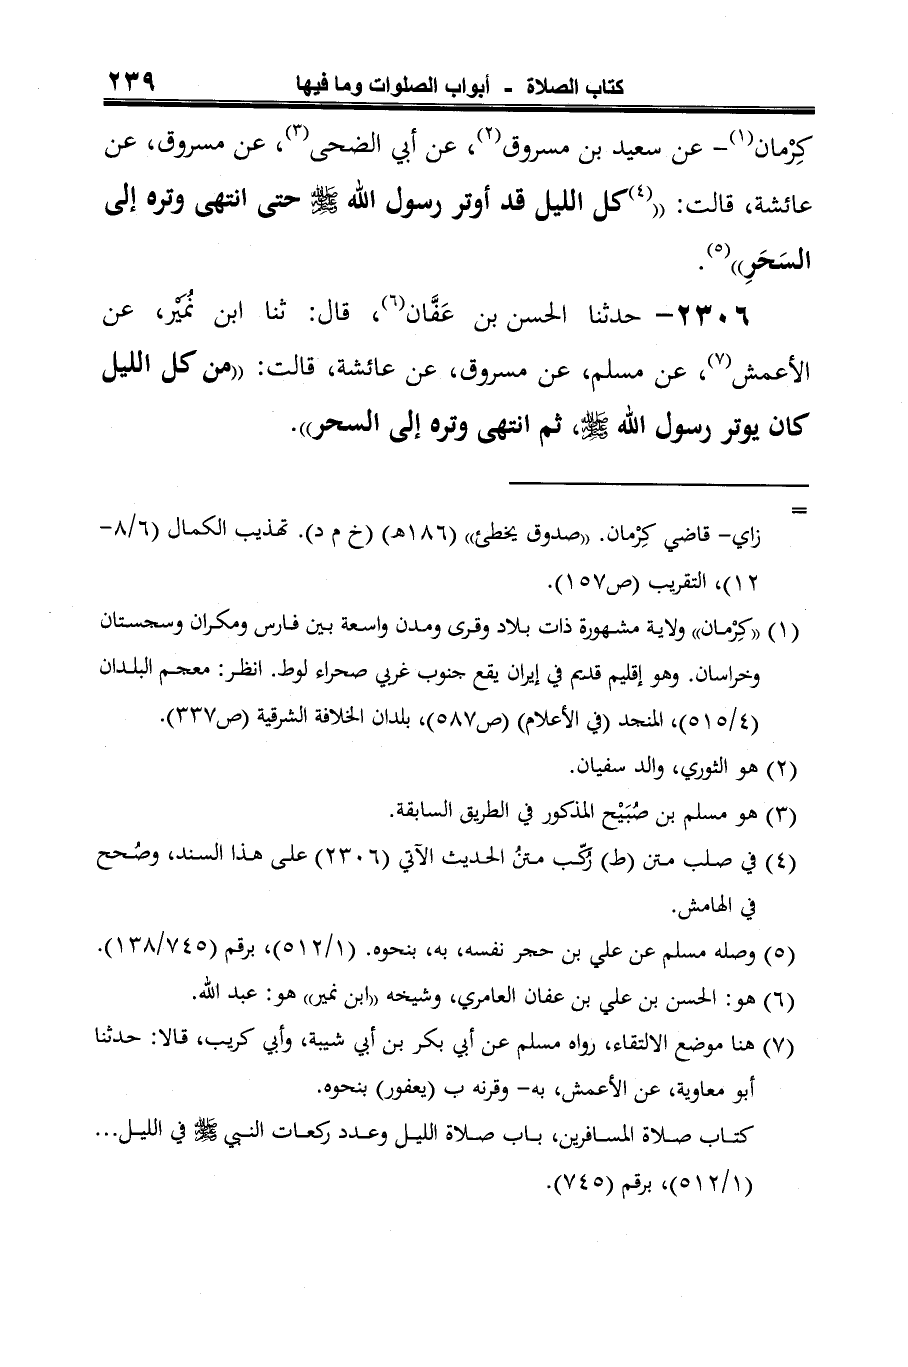 كتاب الصلاة - أبواب الصلوات وما فيها ٢٣٩
كِرْمان(١)- عن سعيد بن مسروق(٢)، عن أبي الضحى(٣)، عن مسروق، عن
عائشة، قالت: ((٤)كل الليل قد أوتر رسول الله ﷺ حتى انتهى وتره إلى
السَحَرِ))(٥).
٢٣٠٦- حدثنا الحسن بن عَفَّان(٦)، قال: ثنا ابن نُمَيْر، عن
الأعمش(٧)، عن مسلم، عن مسروق، عن عائشة، قالت: ((من كل الليل
كان يوتر رسول الله ﷺ، ثم انتهى وتره إلى السحر)).
=
زاي- قاضي كِرْمان. ((صدوق يخطئ)) (١٨٦هـ) (خ م د). تهذيب الكمال (٨/٦-
١٢)، التقريب (ص١٥٧).
(١) ((كِرْمان)) ولاية مشهورة ذات بلاد وقرى ومدن واسعة بين فارس ومكران وسجستان
وخراسان. وهو إقليم قديم في إيران يقع جنوب غربي صحراء لوط. انظر: معجم البلدان
(٥١٥/٤)، المنجد (في الأعلام) (ص٥٨٧)، بلدان الخلافة الشرقية (ص٣٣٧).
(٢) هو الثوري، والد سفيان.
(٣) هو مسلم بن صُبَيْح المذكور في الطريق السابقة.
(٤) في صلب متن (ط) رُكّب متنُ الحديث الآتي (٢٣٠٦) على هذا السند، وصُحح
في الهامش.
(٥) وصله مسلم عن علي بن حجر نفسه، به، بنحوه. (٥١٢/١)، برقم (١٣٨/٧٤٥).
(٦) هو: الحسن بن علي بن عفان العامري، وشيخه ((ابن نمير)) هو: عبد الله.
(٧) هنا موضع الالتقاء، رواه مسلم عن أبي بكر بن أبي شيبة، وأبي كريب، قالا: حدثنا
أبو معاوية، عن الأعمش، به- وقرنه ب (يعفور) بنحوه.
كتاب صلاة المسافرين، باب صلاة الليل وعدد ركعات النبي ﷺ في الليل...
(٥١٢/١)، برقم (٧٤٥).